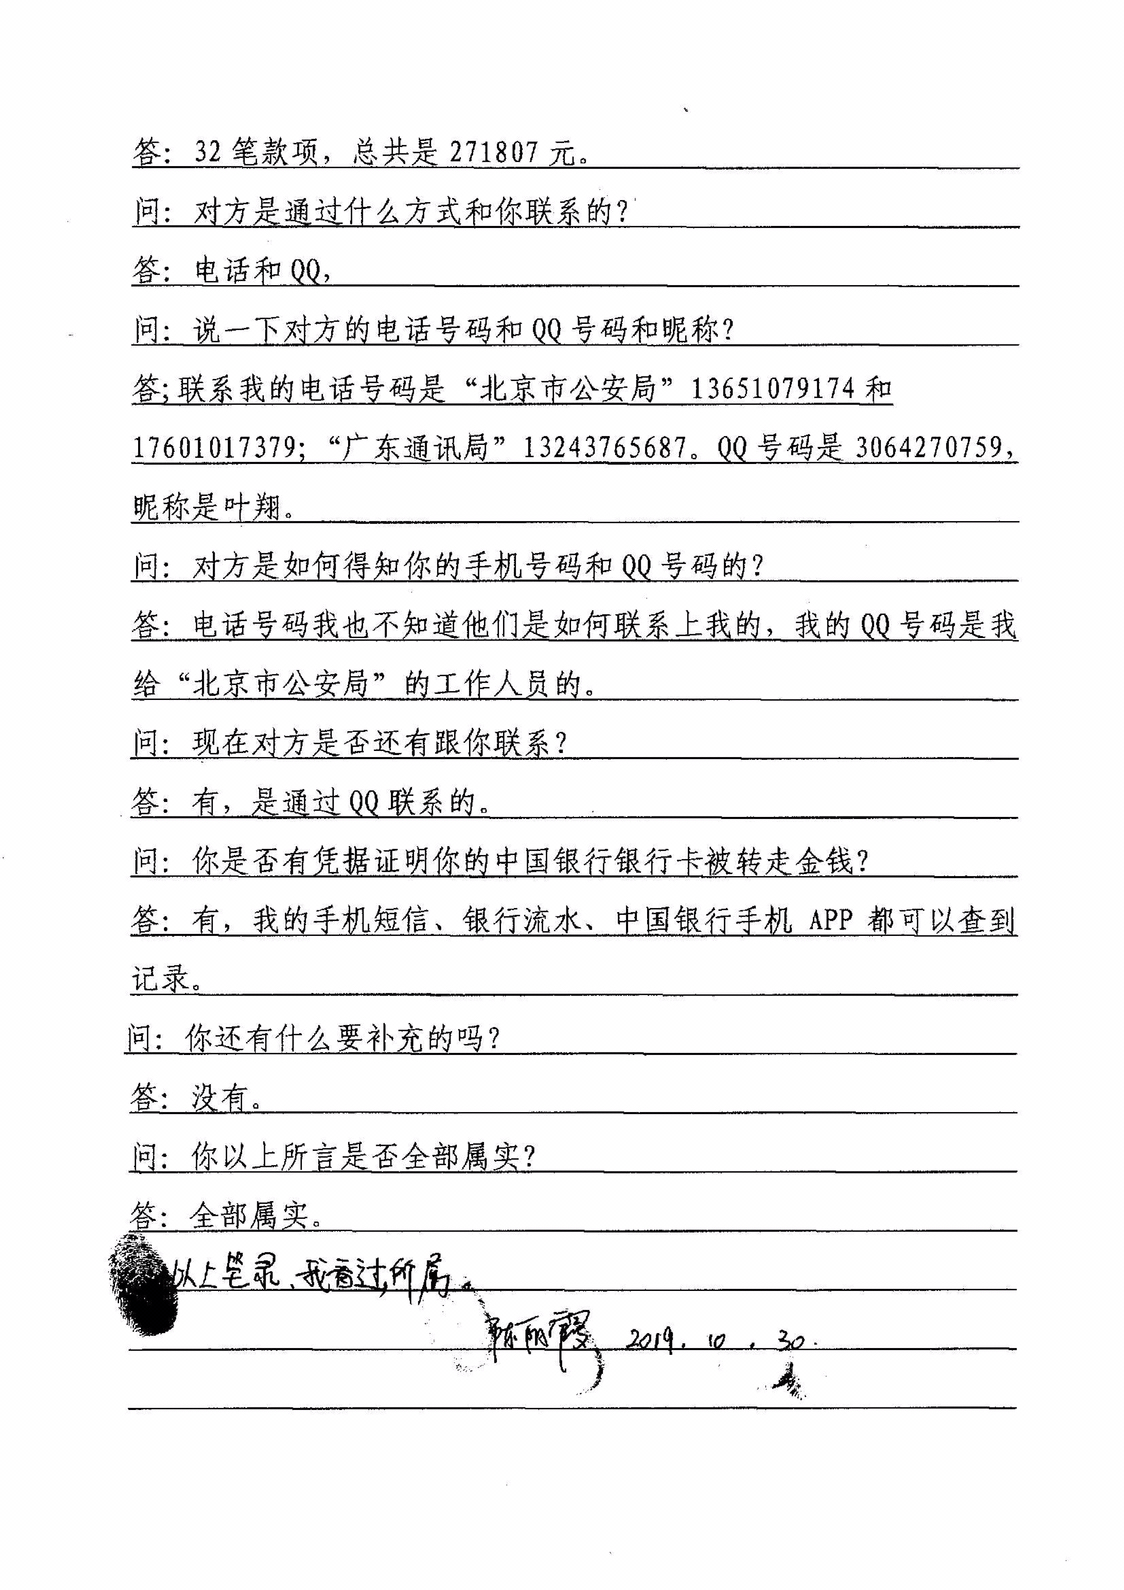 答：32笔款项，总共是271807元。
问：对方是通过什么方式和你联系的？
答：电话和QQ，
问：说一下对方的电话号码和QQ号码和昵称？
答；联系我的电话号码是“北京市公安局”13651079174和
17601017379；“广东通讯局”13243765687。QQ号码是3064270759，
昵称是叶翔。
问：对方是如何得知你的手机号码和QQ号码的？
答：电话号码我也不知道他们是如何联系上我的，我的QQ号码是我
给“北京市公安局”的工作人员的。
问：现在对方是否还有跟你联系？
答：有，是通过QQ联系的。
问：你是否有凭据证明你的中国银行银行卡被转走金钱？
答：有，我的手机短信、银行流水、中国银行手机 APP 都可以查到
记录。
问：你还有什么要补充的吗？
答：没有。
问：你以上所言是否全部属实？
答：全部属实。
以上笔录、我看过，所属。
陈丽霞 2019.10.30.